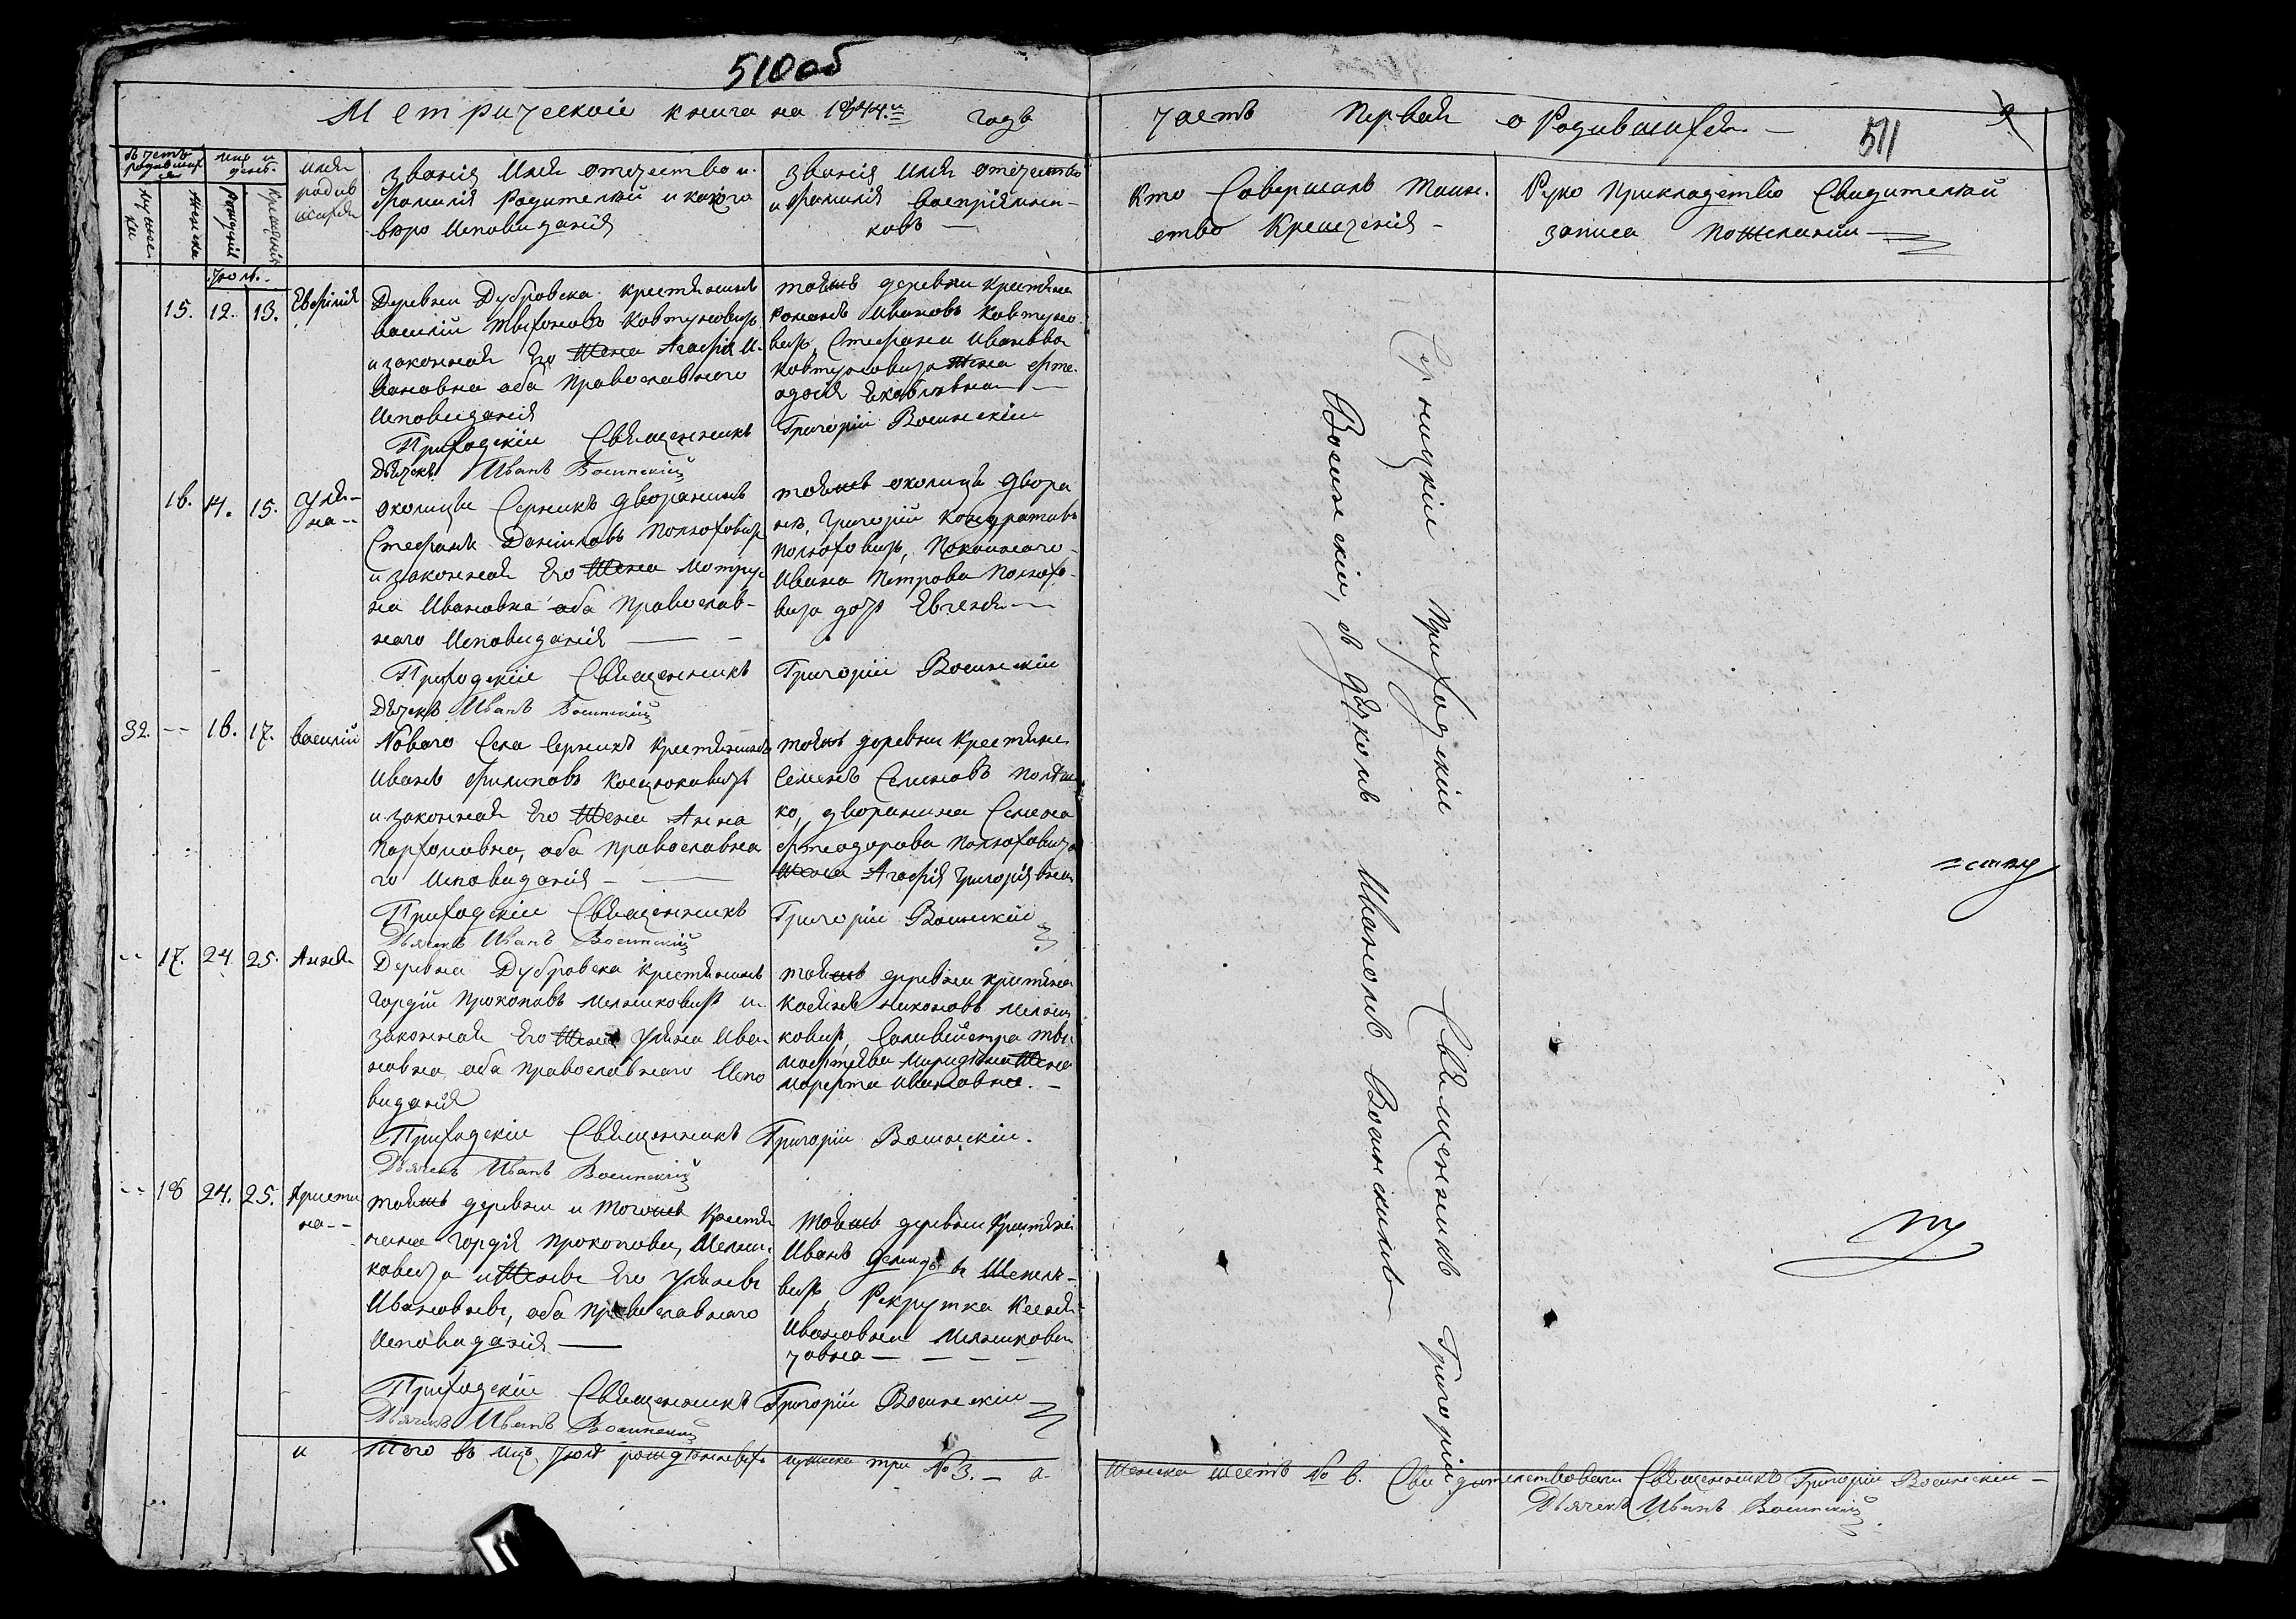 510 об
Метрической книга на 1844.й годъ
часть Первая о Родившихся. —
511
9
въ четъ родившихся
мужеска
женска
мцъ и день
Рождения
Крещения
имя родившихся
звания Имя отечество и
Фамилия Родителей и какого
вѣро Исповиданія
звания Имя отечество
и Фамилия Восприемни-
ковъ —
Кто Совершалъ Таин-
ство Крещения -
Руко Прикладство Свидителей
записи По желанию
Июль.
15. 12. 13. Евфимія
Деревни Дубровска Крестянинъ
Василий Тихоновъ Ковтуновичъ
и законная Его Жена Агафия И-
вановна оба Православнаго
Исповиданія
Приходскіи Священникъ
Дьячекъ Иванъ Воинский
тоейже деревни Крестяне
Романъ Ивановъ Ковтуно-
вичъ, Стефана Иванова
Ковтуновича Жена Фте-
одосия Яковлевна —
Григорій Воинскій
16. 14. 15. Улія-
на --
околицы Серникъ дворянинъ
Стефанъ Даниловъ Полхофовичъ
и законная Его Жена Мотру-
на Ивановна оба Православ-
наго Исповиданія —
Приходскіи Священникъ
Дьячекъ Иванъ Воинский
тоейже околицы дворя
не, Григорій Кондратовъ
Полхофовичъ, Покойнаго
Ивана Петрова Полхофо-
вича дочь Евгения —
Григорій Воинскій
32. -- 16. 17. Василий
Новаго Села Серникъ Крестянинъ
Иванъ Филиповъ Косцюковичъ
и законная Его Жена Анна
Парфомовна, оба Православна
го Исповиданія —
Приходскіи Священникъ
Дьячекъ Иванъ Воинский
тоейже деревни Крестяне
Семенъ Семеновъ
ко, дворянина Семена
Фтеодорова Полхофовича
Жена Агафия Григориевна
Григорій Воинскій
-- 17. 24. 25. Анна
Деревни Дубровска Крестянинъ
Гордій Прокоповъ Мельниковичъ и
законная Его Жена Уляна Ива
новна, оба Православнаго Испо
виданія
Приходскіи Священникъ
Дьячекъ Иванъ Воинский
тоейже деревни Крестяне
Касянъ Никоновъ Мельни
ковичъ,
Жена
Марфта Ивановна. —
Григорій Воинскій.
-- 18 24. 25. Христи
на --
тоейже деревни и тогоже Крестя
нина Гордія Прокопова, Мельни-
ковича и Жены Его Уляны
Ивановны, оба Православнаго
Исповиданія —
Приходскіи Священникъ
Дьячекъ Иванъ Воинский
Тоейже деревни Крестяне
Иванъ
вичъ, Рекрутка Ксеня
Ивановна Мельникови
човна — — —
Григорій Воинскій
Серницкій Приходскій Священникъ Григорій
Воинскій, съ дячкомъ Иваномъ Воинскимъ
и того въ мцѣ Июлѣ рожденныхъ мужска три № 3. — а
Женска шесть № 6. Свидителствовали Священникъ Григорій Воинскій —
Дьячекъ Иванъ Воинский